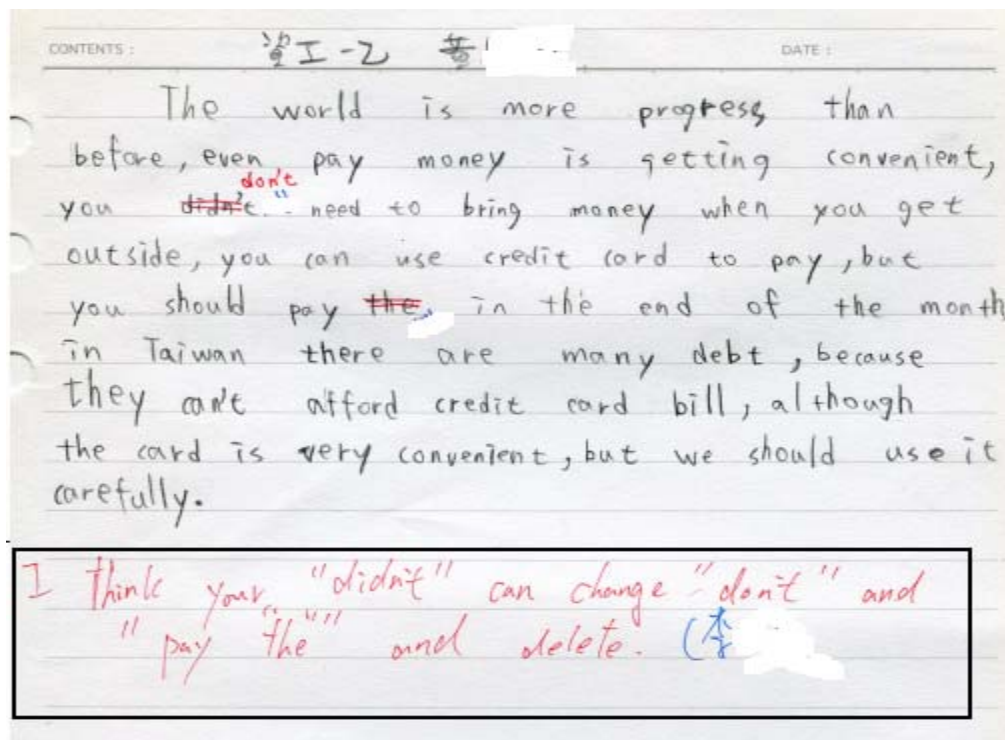 CONTENTS : 資工-乙 黃 DATE :
The world is more progress than
before, even pay money is getting convenient,
don't
you didn't need to bring money when you get
outside, you can use credit card to pay, but
you should pay the in the end of the month
in Taiwan there are many debt, because
they can't afford credit card bill, although
the card is very convenient, but we should use it
carefully.
I think your "didn't" can change "don't" and
"pay "the"" and delete. (李